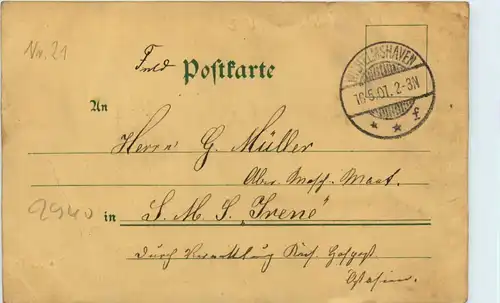 Nr. 21
Feld Postkarte
WILHELMSHAVEN
16.5.01. 2-3N
* * f
An
Herrn G. Müller
Ober Masch. Maat.
2940
in S. M. S. "Irene"
durch Vermittlung Kais. Hofpost
Ostasien.